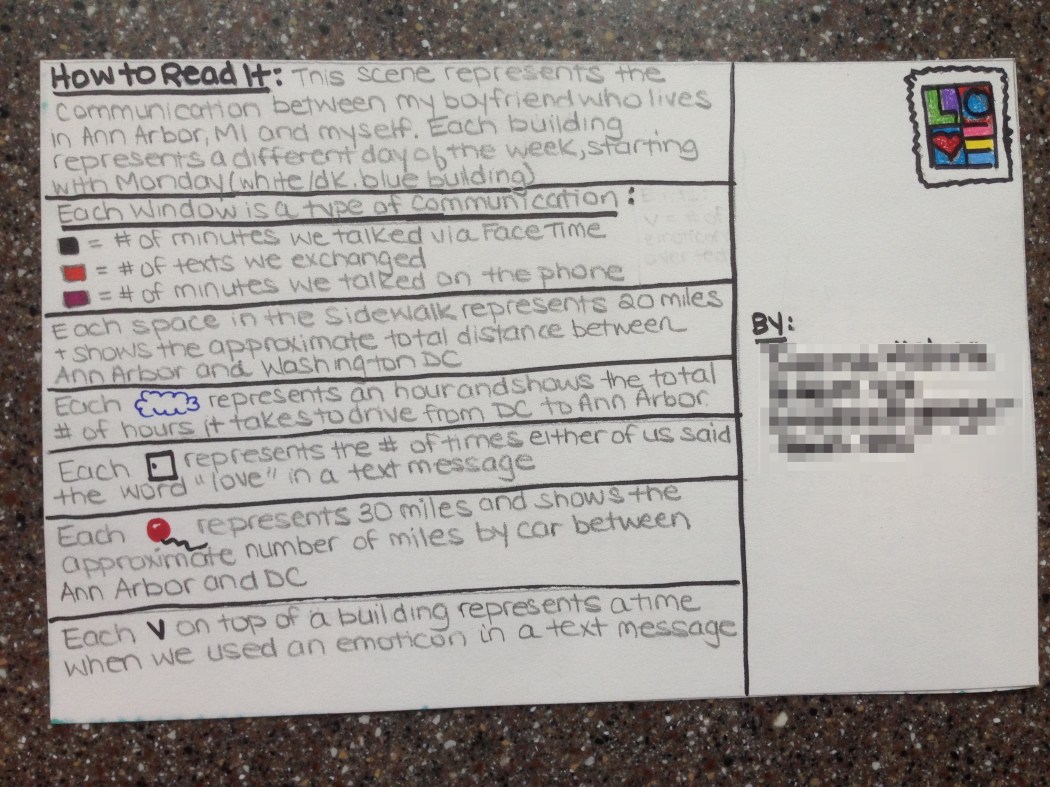 How to Read It: This scene represents the
communication between my boyfriend who lives
in Ann Arbor, MI and myself. Each building
represents a different day of the week, starting
with Monday (white/dk. blue building)
Each window is a type of communication:
= # of minutes we talked via FaceTime
= # of texts we exchanged
= # of minutes we talked on the phone
Each space in the sidewalk represents 20 miles
+ shows the approximate total distance between
Ann Arbor and Washington DC
Each represents an hour and shows the total
# of hours it takes to drive from DC to Ann Arbor
Each represents the # of times either of us said
the word "love" in a text message
Each represents 30 miles and shows the
approximate number of miles by car between
Ann Arbor and DC
Each V on top of a building represents a time
when we used an emoticon in a text message
BY: